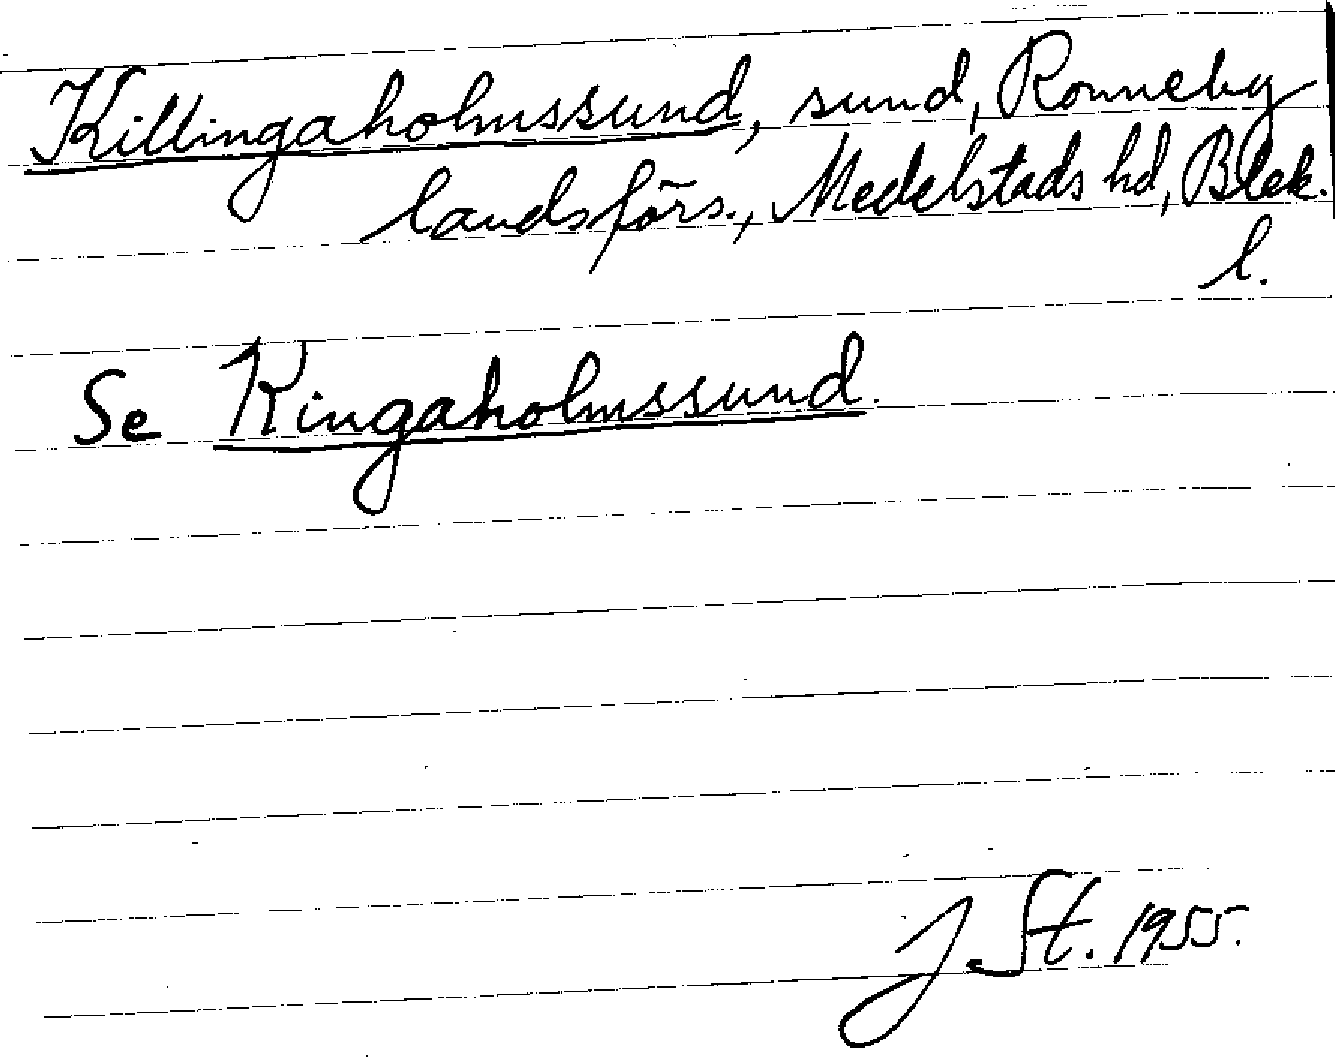 Killingaholmssund, sund, Ronneby
landsförs., Medelstads hd, Blek.
l.
Se Kingaholmssund.
J. St. 1955.